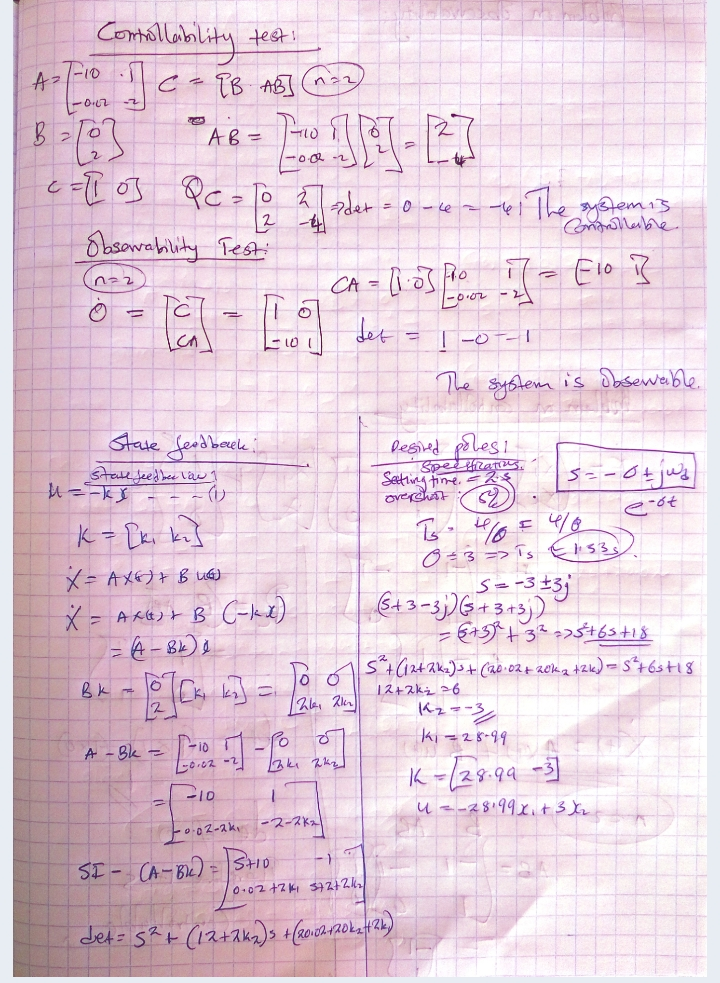 Controllability test:
A = [-10 .1; -0.02 -2] C = [B AB] n=2
B = [0; 2] AB = [-10 1; -0.02 -2] [0; 2] = [2; -4]
C = [1 0] QC = [0 2; 2 -4] => det = 0 - 4 = -4; The system is
Controllable.
Observability Test:
n=2
CA = [1 0] [-10 1; -0.02 -2] = [-10 1]
O = [C; CA] = [1 0; -10 1] det = 1 - 0 = 1
The system is Observable.
State feedback:
State feedback law:
u = -kx - - - (1)
K = [k1 k2]
Ẋ = AX(t) + B u(t)
Ẋ = AX(t) + B (-kx)
= (A - BK) x
BK = [0; 2] [k1 k2] = [0 0; 2k1 2k2]
A - BK = [-10 1; -0.02 -2] - [0 0; 2k1 2k2]
= [-10 1; -0.02-2k1 -2-2k2]
SI - (A-BK) = [S+10 -1; 0.02+2k1 S+2+2k2]
det = S² + (12+2k2)s + (20.02+20k2+2k1)
Desired poles:
Specifications.
Settling time = 2s
overshoot: 5%
S = -σ ± jωd
e^-σt
Ts = 4/σ = 4/σ
σ = 3 => Ts = 1.33s
S = -3 ± 3j
(s+3-3j)(s+3+3j)
= (s+3)² + 3² => s²+6s+18
S² + (12+2k2)s + (20.02+20k2+2k1) = S²+6s+18
12+2k2 = 6
K2 = -3
K1 = 28.99
K = [28.99 -3]
u = -28.99x1 + 3x2